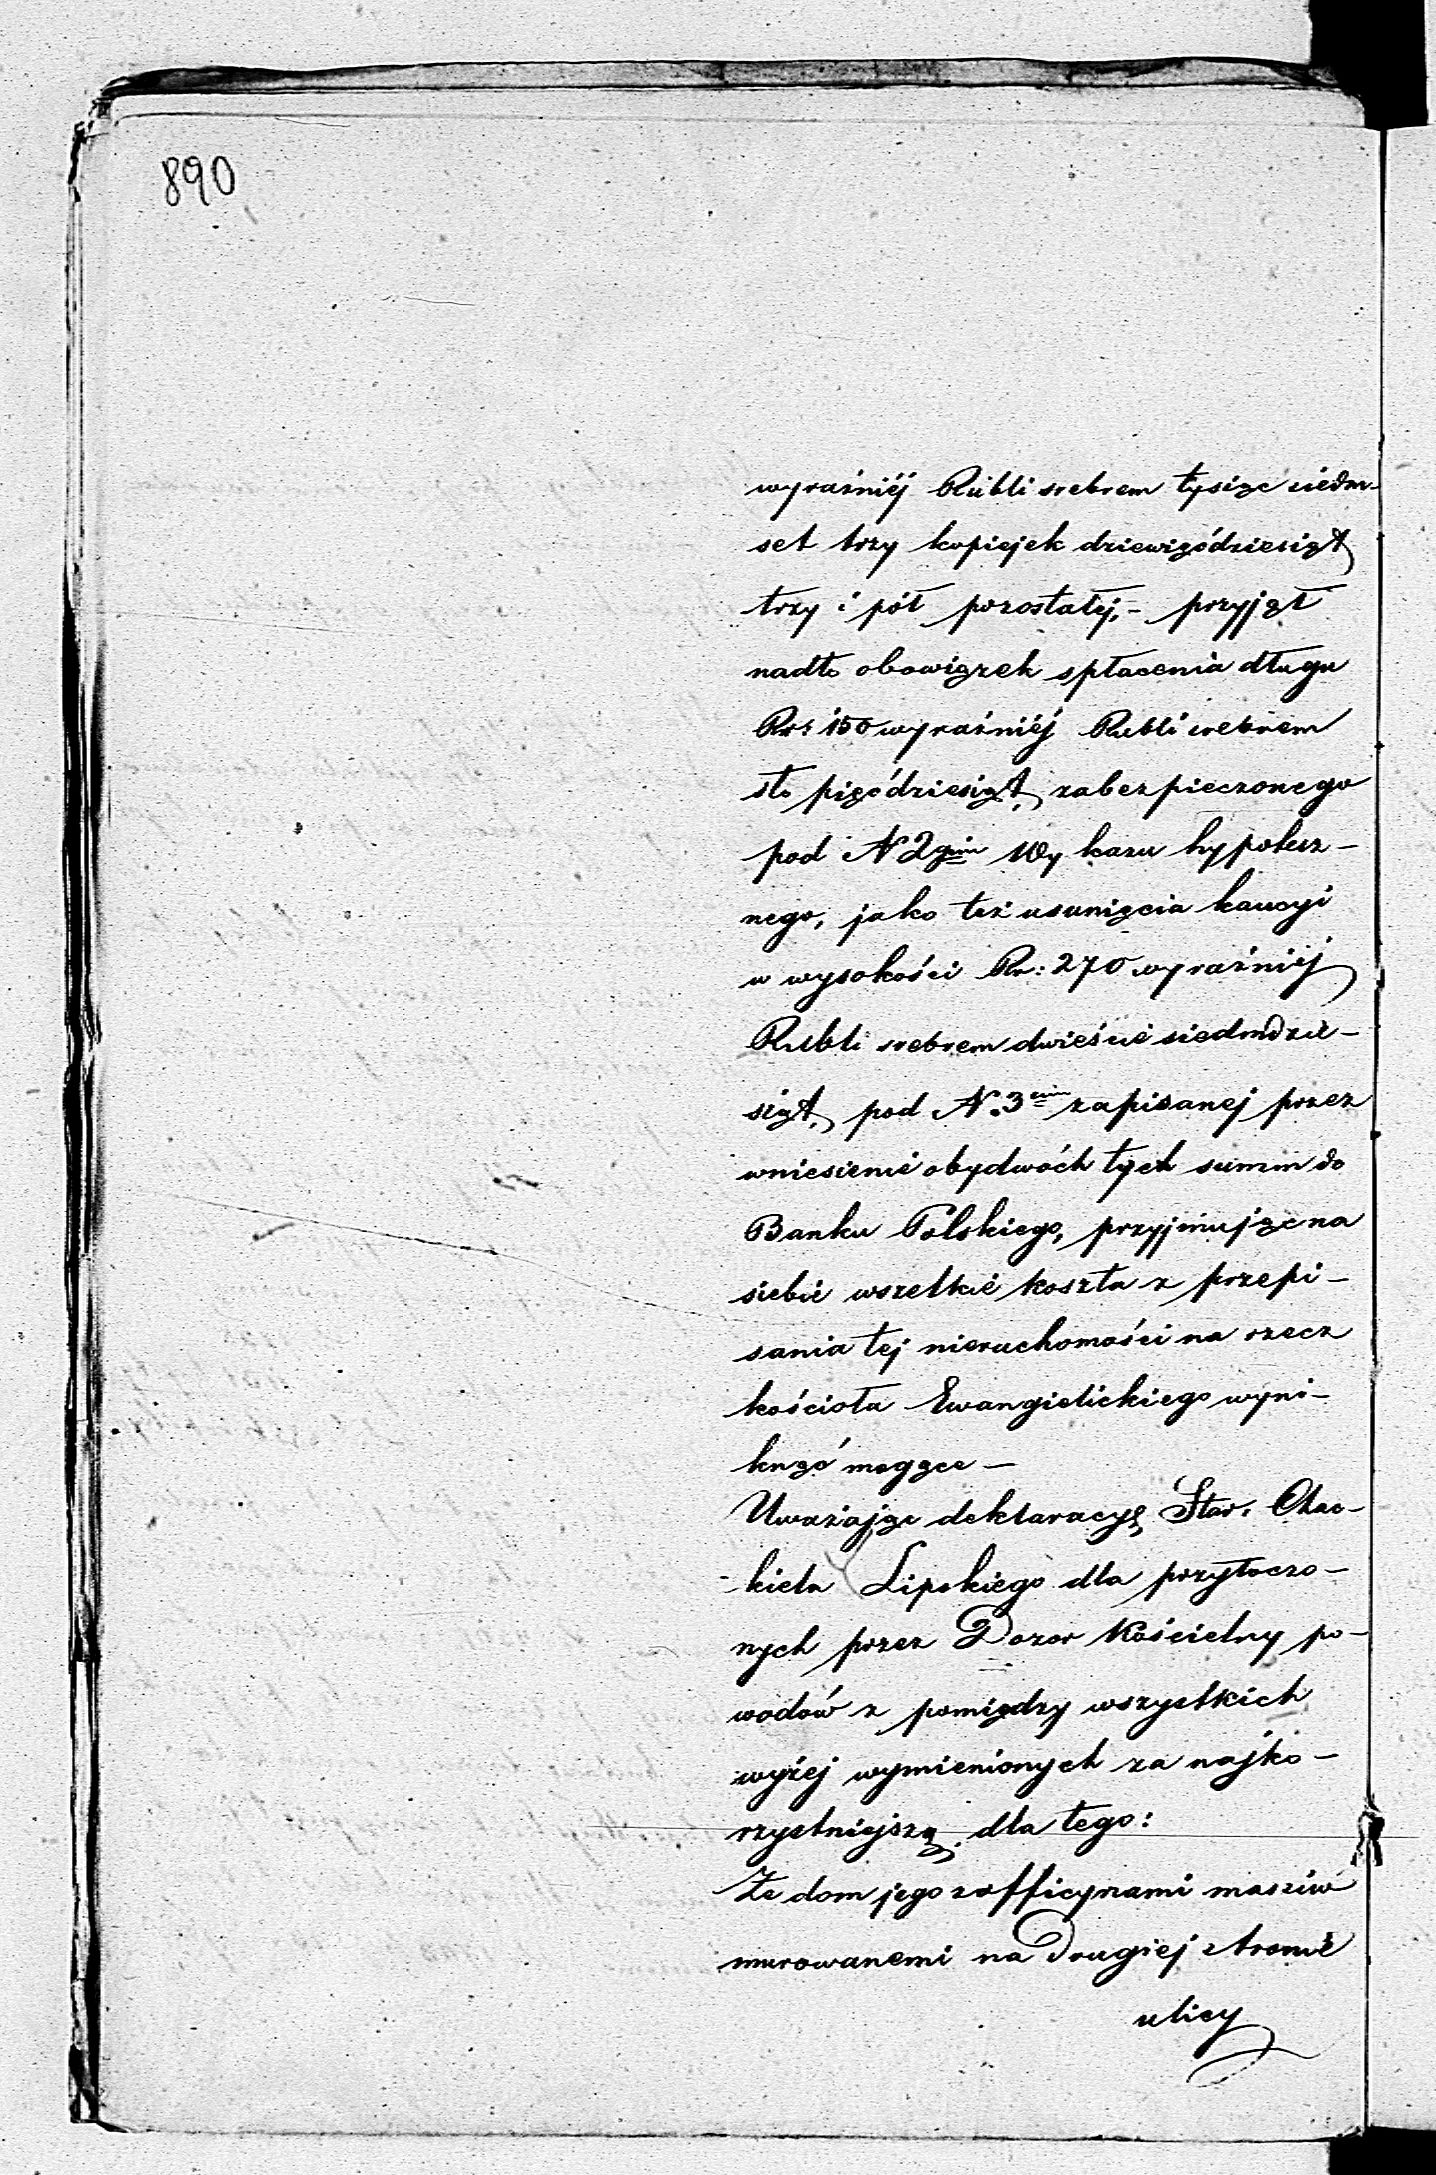 890
wyraźniéj Rubli srebrem tysiąc siedm-
set trzy kopiejek dziewięćdziesiąt
trzy i pół pozostałéj, – przyjął
nadto obowiązek spłacenia długu
Rs: 150 wyraźniéj Rubli srebrem
sto pięćdziesiąt, zabezpieczonego
pod N 2gim Wykazu hypotecz-
nego, jako też usunięcia kaucyi
w wysokości Rs: 270 wyraźniéj
Rubli srebrem dwieście siedmdzie-
siąt, pod N. 3cim zapisanej przez
wniesienie obydwóch tych summ do
Banku Polskiego, przyjmując na
siebie wszelkie koszta z przepi-
sania tej nieruchomości na rzecz
kościoła Ewangielickiego wyni-
knąć mogące –
Uważając deklaracyę Star. Chac-
kiela Lipskiego dla przytoczo-
nych przez Dozor Kościelny po-
wodów z pomiędzy wszystkich
wyżej wymienionych za najko-
rzystniejszą, dla tego:
Że dom jego z officynami massiw
murowanemi na drugiej stronie
ulicy